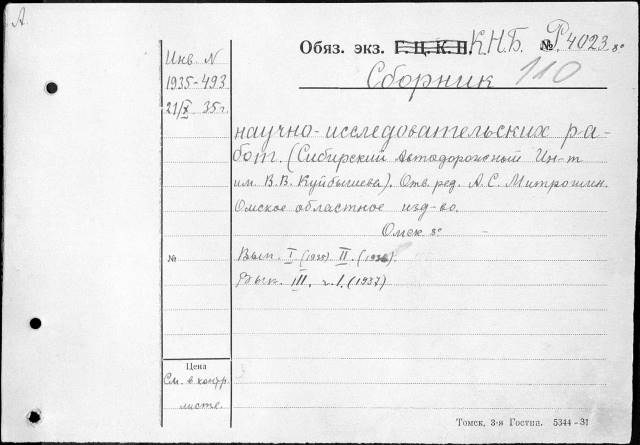 А
Обяз. экз. Г.Ц.К.П. К.Н.Б. № Р4023. 8°
Инв. N
1935-493
21/X 35г.
Сборник
110
научно-исследовательских ра-
бот. (Сибирский Автодорожный Ин-т
им. В.В. Куйбышева). Отв. ред. А.С. Митрошин.
Омское областное изд-во.
Омск. 8°
№
Вып. I (1935) II. (1936).
Вып. III, ч.I. (1937)
Цена
См. в контр.
листе.
Томск, 3-я Гостип. 5344-31